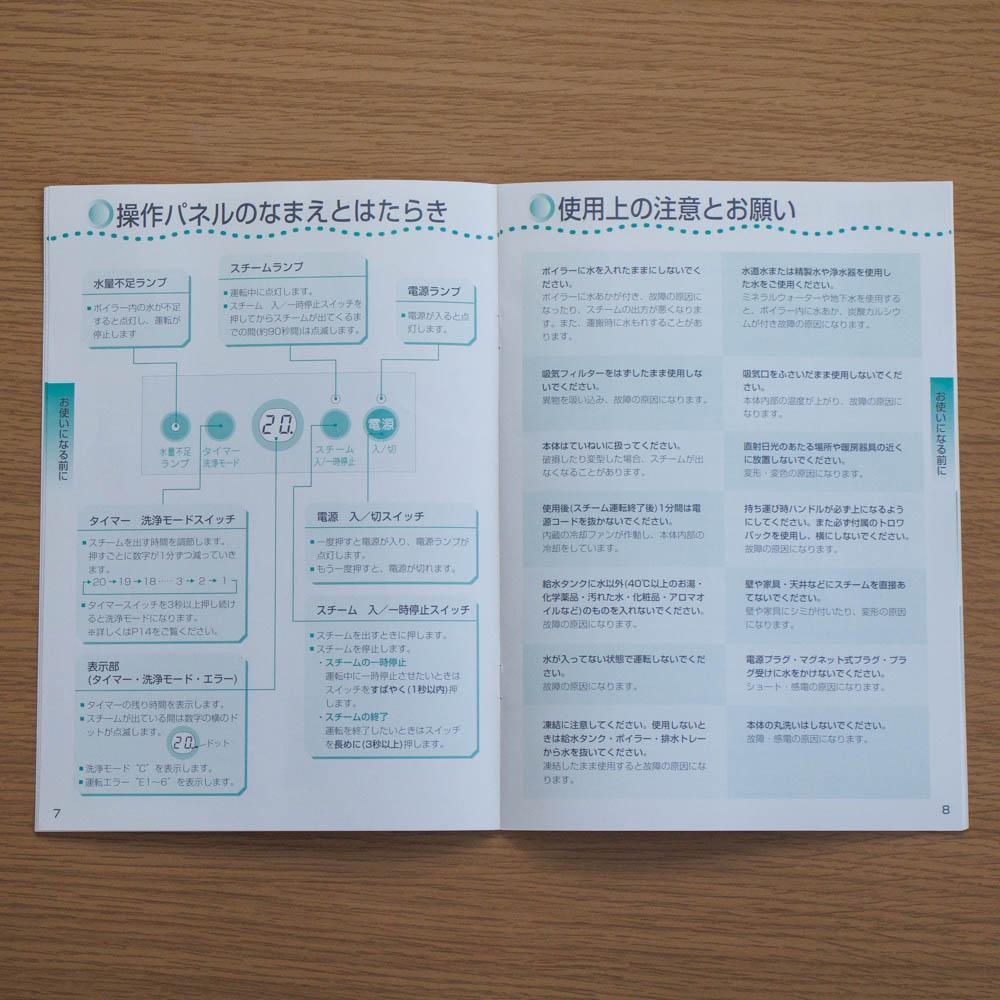 操作パネルのなまえとはたらき
水量不足ランプ
■ボイラー内の水が不足
すると点灯し、運転が
停止します
スチームランプ
■運転中に点灯します。
■スチーム 入/一時停止スイッチを
押してからスチームが出てくるま
での間(約90秒間)は点滅します。
電源ランプ
■電源が入ると点
灯します。
20.
電源
水量不足
ランプ
タイマー
洗浄モード
スチーム
入/一時停止
入/切
お使いになる前に
タイマー 洗浄モードスイッチ
■スチームを出す時間を調節します。
押すごとに数字が1分ずつ減っていき
ます。
→20→19→18‥‥3→2→1
■タイマースイッチを3秒以上押し続け
ると洗浄モードになります。
※詳しくはP14をご覧ください。
表示部
(タイマー・洗浄モード・エラー)
■タイマーの残り時間を表示します。
■スチームが出ている間は数字の横のド
ットが点滅します。
20.
ドット
■洗浄モード“C”を表示します。
■運転エラー“E1~6”を表示します。
電源 入/切スイッチ
■一度押すと電源が入り、電源ランプが
点灯します。
■もう一度押すと、電源が切れます。
スチーム 入/一時停止スイッチ
■スチームを出すときに押します。
■スチームを停止します。
・スチームの一時停止
運転中に一時停止させたいときは
スイッチをすばやく(1秒以内)押
します。
・スチームの終了
運転を終了したいときはスイッチ
を長めに(3秒以上)押します。
7
使用上の注意とお願い
ボイラーに水を入れたままにしないでく
ださい。
ボイラーに水あかが付き、故障の原因に
なったり、スチームの出方が悪くなりま
す。また、運搬時に水もれすることがあ
ります。
水道水または精製水や浄水器を使用し
た水をご使用ください。
ミネラルウォーターや地下水を使用する
と、ボイラー内に水あか、炭酸カルシウ
ムが付き故障の原因になります。
吸気フィルターをはずしたまま使用しな
いでください。
異物を吸い込み、故障の原因になります。
吸気口をふさいだまま使用しないでくだ
さい。
本体内部の温度が上がり、故障の原因に
なります。
本体はていねいに扱ってください。
破損したり変型した場合、スチームが出
なくなることがあります。
直射日光のあたる場所や暖房器具の近く
に放置しないでください。
変形・変色の原因になります。
使用後(スチーム運転終了後)1分間は電
源コードを抜かないでください。
内蔵の冷却ファンが作動し、本体内部の
冷却をしています。
持ち運び時ハンドルが必ず上になるよう
にしてください。また必ず付属のトロワ
パックを使用し、横にしないでください。
故障の原因になります。
給水タンクに水以外(40℃以上のお湯・
化学薬品・汚れた水・化粧品・アロマオ
イルなど)のものを入れないでください。
故障の原因になります。
壁や家具・天井などにスチームを直接あ
てないでください。
壁や家具にシミが付いたり、変形の原因
になります。
水が入ってない状態で運転しないでくだ
さい。
故障の原因になります。
電源プラグ・マグネット式プラグ・プラ
グ受けに水をかけないでください。
ショート・感電の原因になります。
凍結に注意してください。使用しないと
きは給水タンク・ボイラー・排水トレー
から水を抜いてください。
凍結したまま使用すると故障の原因にな
ります。
本体の丸洗いはしないでください。
故障・感電の原因になります。
お使いになる前に
8